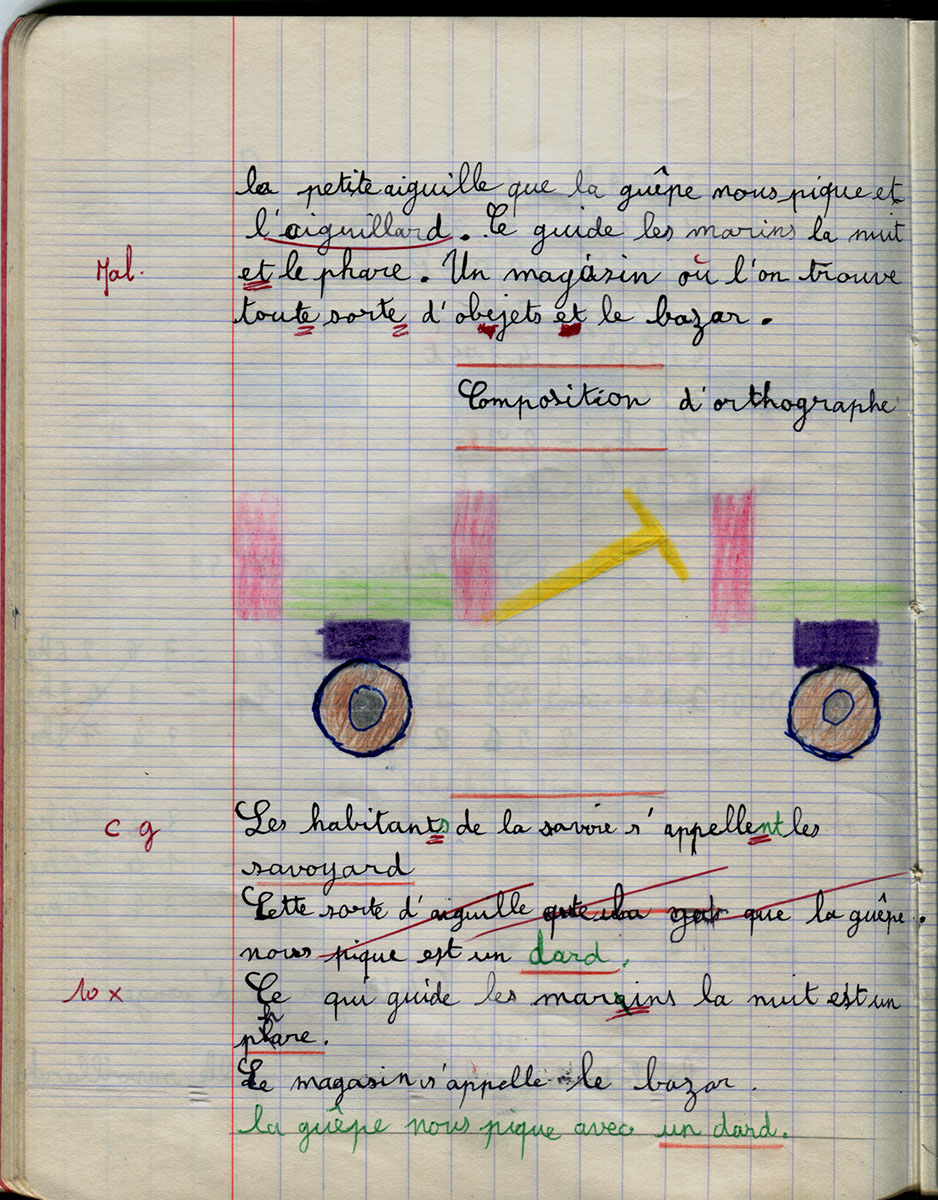 la petite aiguille que la guêpe nous pique et
l'aiguillard. Ce guide les marins la nuit
Mal. et le phare. Un magasin où l'on trouve
toute sorte d'obejets et le bazar.
Composition d'orthographe
c g Les habitants de la savoie s'appellent les
savoyard
Cette sorte d'aiguille que la guêpe.
nous pique est un dard.
10 x Ce qui guide les marins la nuit est un
phare.
Le magasin s'appelle le bazar.
la guêpe nous pique avec un dard.